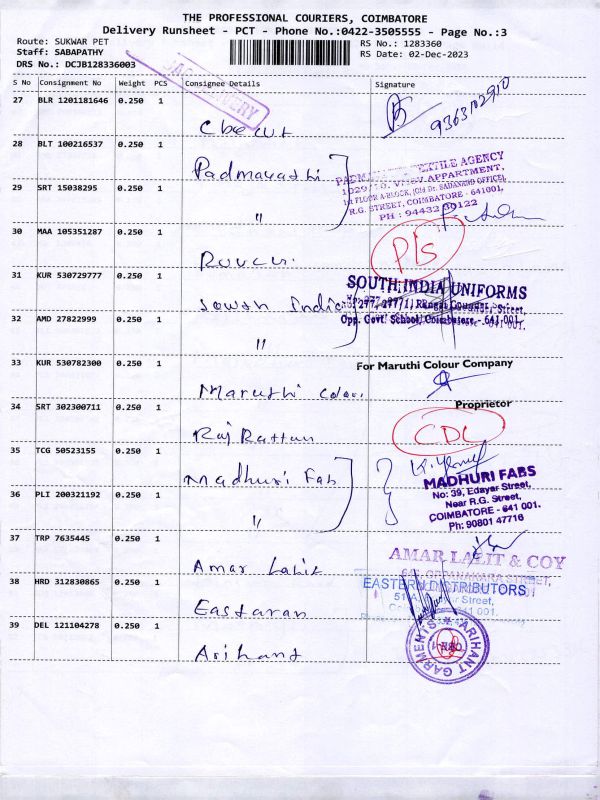 THE PROFESSIONAL COURIERS, COIMBATORE
Delivery Runsheet - PCT - Phone No.:0422-3505555 - Page No.:3
Route: SUKWAR PET
RS No.: 1283360
Staff: SABAPATHY
RS Date: 02-Dec-2023
DRS No.: DCJB128336003
S No Consignment No Weight PCS Consignee Details Signature
27 BLR 1201181646 0.250 1
9363102910
28 BLT 100216537 0.250 1
Padmavathi
TEXTILE AGENCY
29 SRT 15038295 0.250 1
R.G. STREET, COIMBATORE - 641001,
"
30 MAA 105351287 0.250 1
31 KUR 530729777 0.250 1
SOUTH INDIA UNIFORMS
Sowth India
Opp. Govt. School, Coimbatore - 641 001.
32 AMD 27822999 0.250 1
"
33 KUR 530782300 0.250 1
For Maruthi Colour Company
Maruthi
Proprietor
34 SRT 302300711 0.250 1
CDC
Raj Rattan
35 TCG 50523155 0.250 1
Madhuri Fab
MADHURI FABS
No: 39, Edayar Street,
Near R.G. Street,
COIMBATORE - 641 001.
Ph: 90801 47716
36 PLI 200321192 0.250 1
"
37 TRP 7635445 0.250 1
AMAR LALIT & COY
Amar Lalit
38 HRD 312830865 0.250 1
EASTERN DISTRIBUTORS
Eastaran
39 DEL 121104278 0.250 1
ARIHANT GARMENTS
Arihant